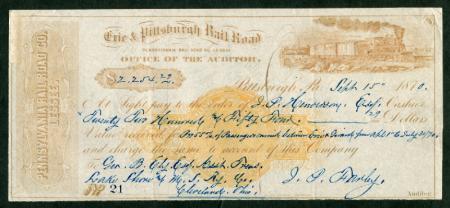 PENNSYLVANIA RAIL ROAD CO.
LESSEE.
Erie & Pittsburgh Rail Road
PENNSYLVANIA RAIL ROAD CO. LESSEE
OFFICE OF THE AUDITOR.
$2,254.
Pittsburgh Pa Sept. 15th 1870.
At sight pay to the order of J. P. Henderson, Esq. Cashier
Twenty Two Hundred & Fifty Four Dollars
Value received for of Passenger between Erie & April & July
and charge the same to account of this Company
To Geo. B. Ely Esq. Asst. Treas.
Lake Shore & M. S. Ry. Co.
Cleveland, Ohio.
J. P. Farley
Auditor.
No 21